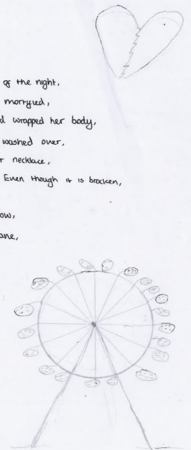 of the night,
mortyred,
d wrapped her body,
washed over,
r necklace,
Even though it is brocken,
ow,
ane,